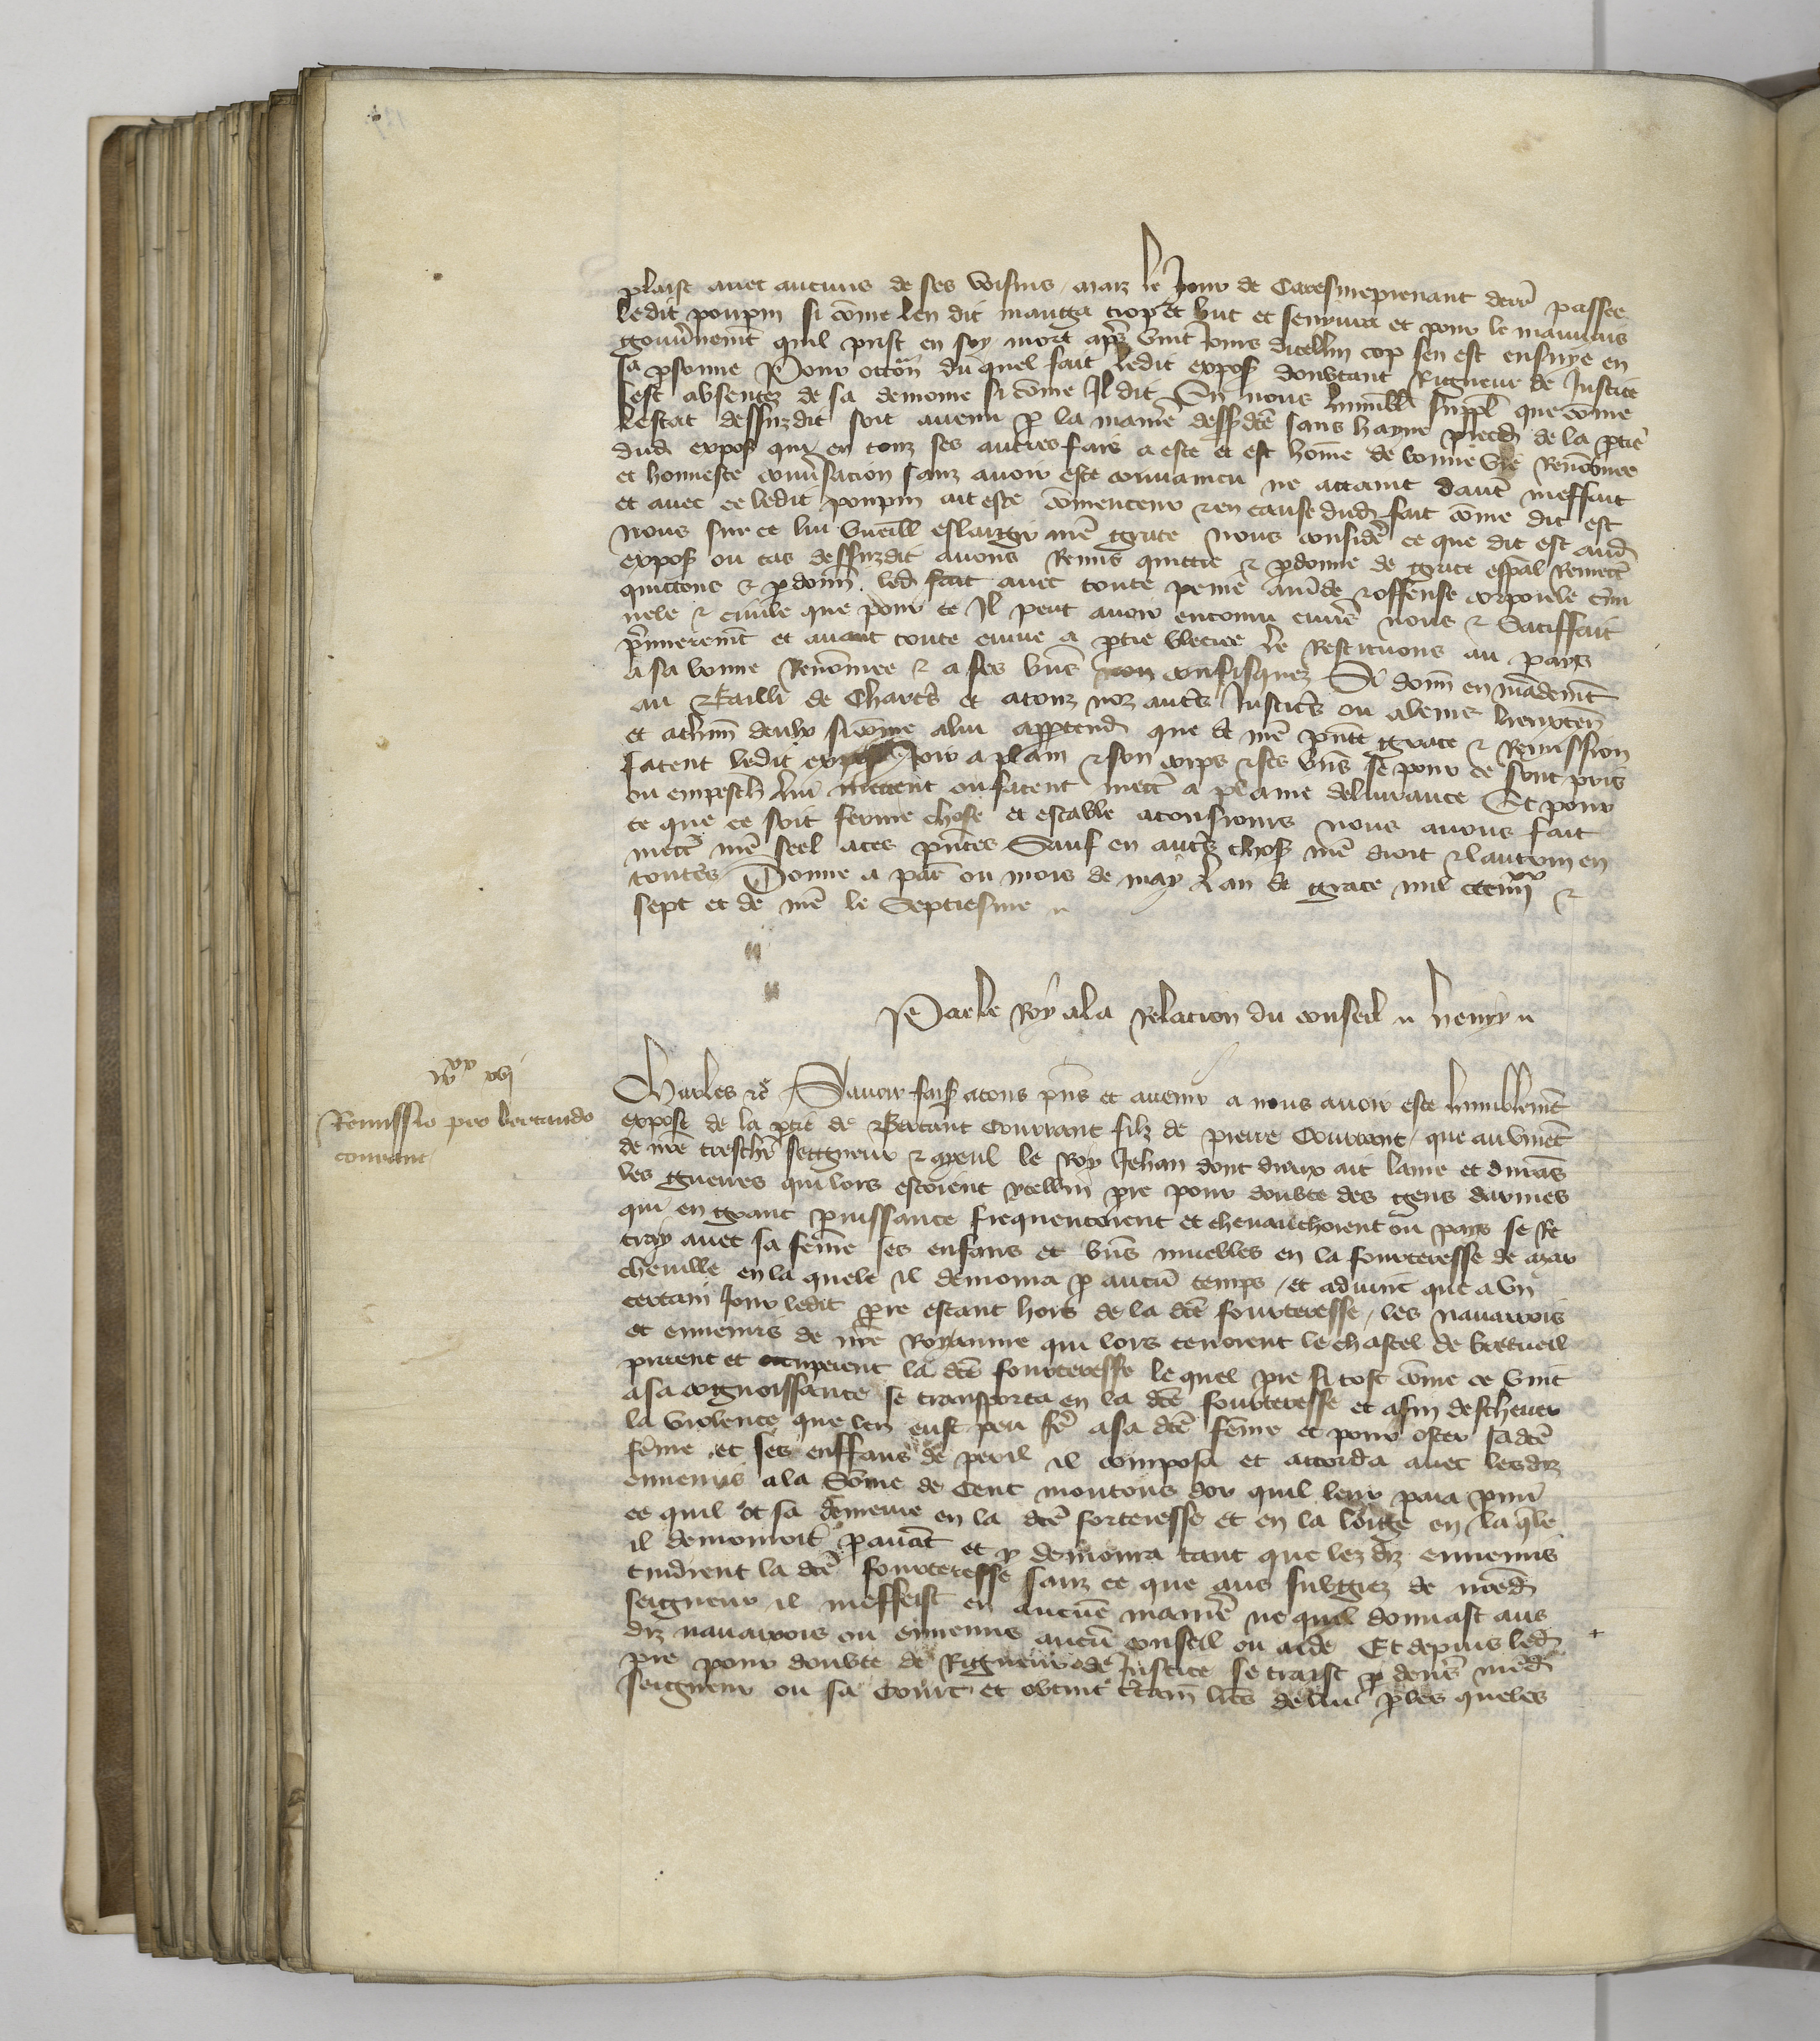 plaist avec aucuns de ses voisins / maiz le Jour de Caresmeprenant derr passee
ledit poupin si cõme len dit manga trop et but et senyvra et pour le mauvais
gouvnemt quil prist en soy mort aps vint jours dicellui cop sen est ensuye en
sa psonne Pour occon du quel fait ledit expos doubtant Rigueur de Justice
sest absentez de sa demeure si cõme Il dit Sy nous humbl suppl que cõme
lestat dessuzdit soit avenu p la maniere dessdte sans hayne preced de la ptie
dud expos qui en touz ses autres fais a este et est home de bonne vie Renõmee
et honneste cõnvsacion sanz avoir este convaincu ne attaint daut meffait
et avec ce ledit poupin ait este cõmenceur & en cause dud fait cõme dit est
nous sur ce lui vueill eslargir nre grace nous consider ce que dit est aud
expos ou cas dessuzdit avons Remis quittie & pdonne de grace espal Remett
quittons & pdonn led fait avec toute peine amde & offense corporele cim
nele & civile que pour ce Il peut avoir encouru envers nous & Satiffait
pmieremt et avant toute euvre a ptie bleciee le Restituons au pays
a sa bonne Renõmee & a ses biens non confisquez Si donn en mãdemt
au Bailli de Chartrs et a touz noz autrs Justiciers ou a leurs lieuxten
et a chun deulx si cõme a lui apptend que de nre pnte grace & Remission
facent ledit expos Joir a plain & son corps & ses biens se pour ce sont pris
ou empesch lui mettent ou facent mett a plaine delivrance Et pour
ce que ce soit ferme chose et estable a tousjours nous avons fait
mett nre seel a ces pntes Sauf en autrs chos nre droit & lautruy en
toutes Donne a paris ou mois de may lan de grace mil cccIIIIxx &
sept et de nre le Septiesme
Par le Roy a la Relacion du conseil henry
IIIIxx xvi
Remissio pro bertando
courant
Charles &c Savoir fais a tous pns et avenir a nous avoir este humblemt
expose de la ptie de Bertant Courrant filz de pierre Courrant / que au vivant
de nre treschr seigneur & ayeul le Roy Jehan dont dieux ait lame et durans
les guerres qui lors estoient ycellui pre pour doubte des gens darmes
qui en grant puissance frequentoient et chevauchoient ou pays se Re
tray avec sa feme ses enfans et biens muebles en la fourteresse de mar
cheville en la quele il demoura p aucũ temps / et advint que a un
certain jour ledit pre estant hors de la dte fourteresse / les navarrois
et ennemis de nre Royaume qui lors tenoient le chastel de bretueil
prirent et occuperent la dte fourteresse le quel pre si tost cõme ce vint
a sa cognoissance se transporta en la dte fourteresse et afin deschever
la violence que len eust peu fe a sa dte feme et pour oster sadte
feme et ses enffans de peril il composa et accorda avec lesdiz
ennemis a la Sõme de Cent moutons dor quil leur paia pmi
ce quil ot sa demeure en la dte forteresse et en la loige en la qle
il demouroit pavat et y demoura tant que lez diz ennemis
tindrent la dte fourteresse sanz ce que aus subgiez de nred
seigneur il meffeist en aucune maniere ne quil donnast aus
diz navarrois ou ennemis aucũ conseil ou aide Et depuis led
pre pour doubte de Rigueur de Justice se traist p devs nred
seigneur ou sa Court et obtint ctain lres de lui p les queles